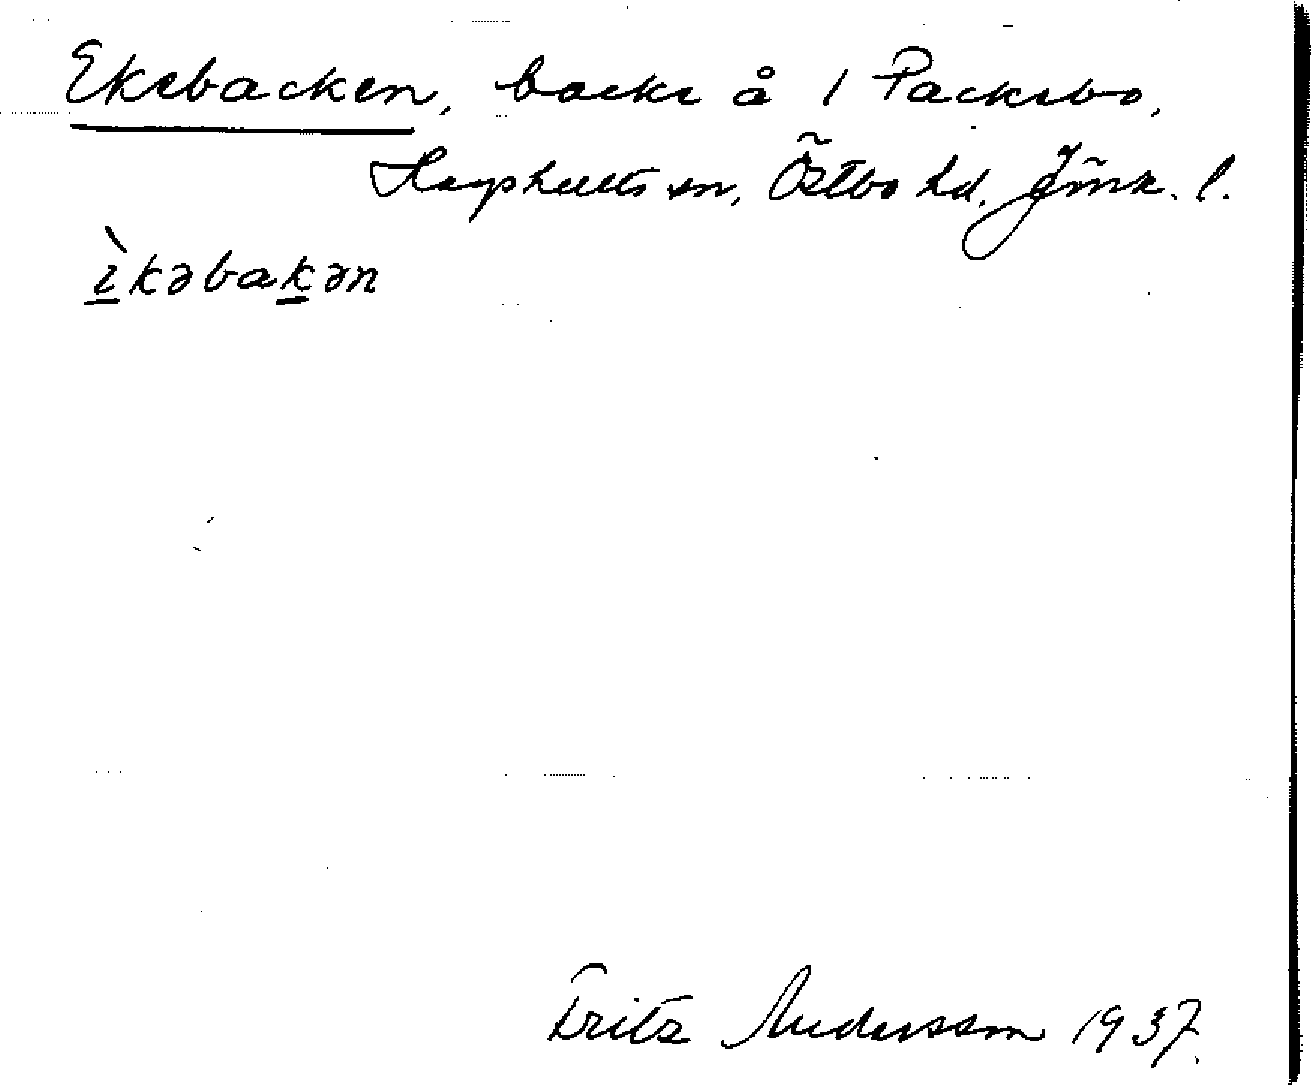 Ekebacken, backe å 1 Packebo,
Hagshults sn, Östbo hd. Jönk. l.
ìkəbakən
Fritz Andersson 1937.